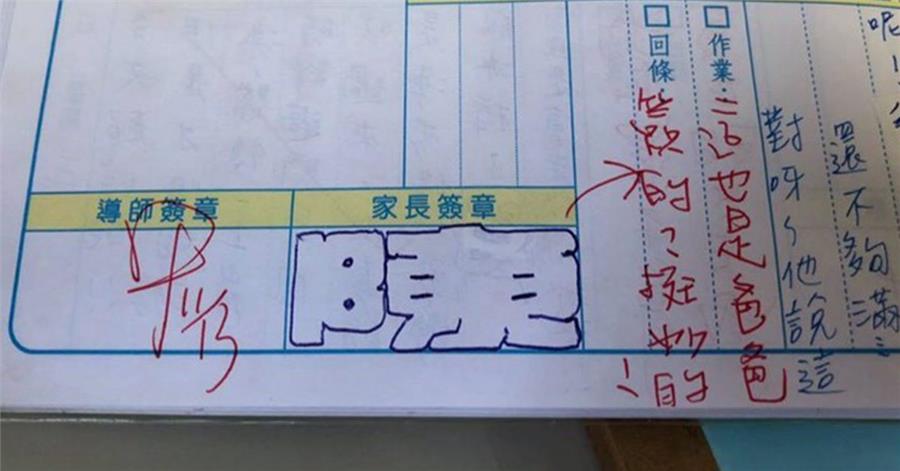 呢
還不夠滿
對呀，他說這
□作業：
這也是爸爸
□回條：
簽的，挺妙的！
家長簽章
導師簽章
11/13